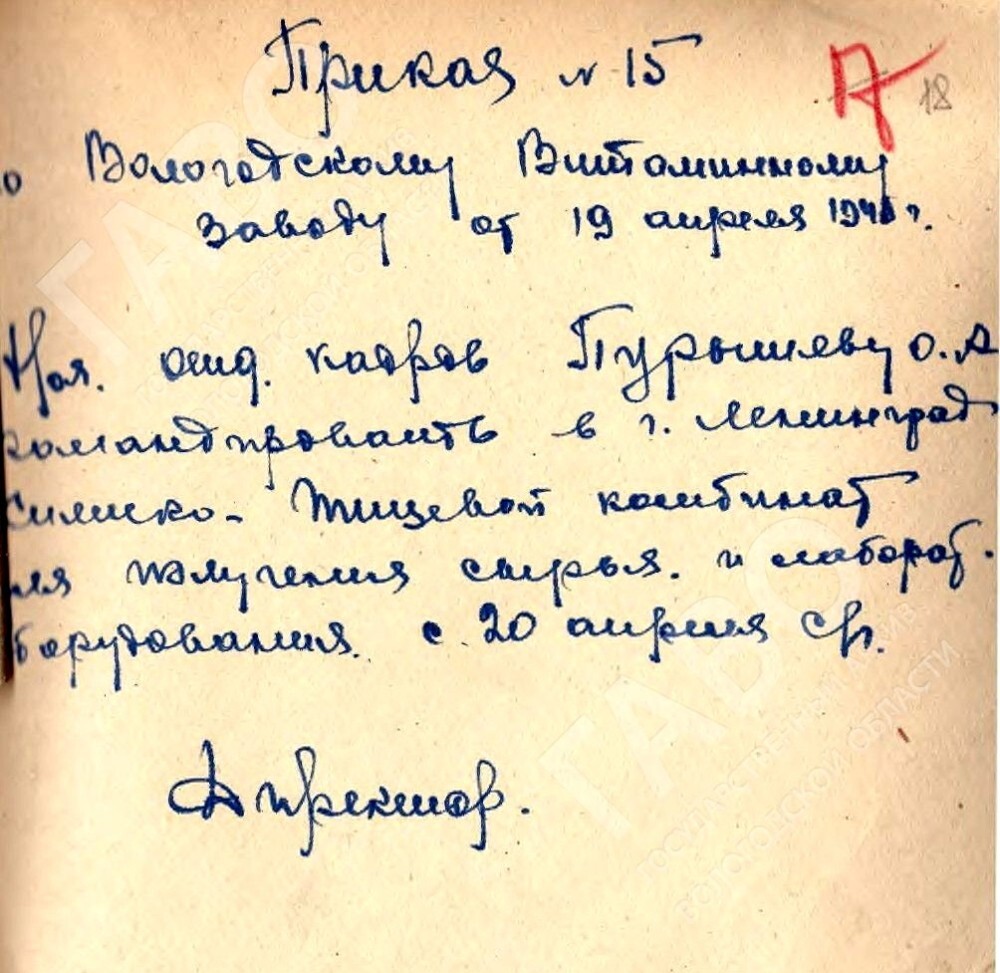 Приказ № 15
18
о Вологодскому Витаминному
заводу от 19 апреля г.
Нач. отд. кадров Пурышеву О. А
командировать в г. Ленинград
Химико-Пищевой комбинат
ля получения сырья. и laборат.
борудования. с 20 апреля с/г.
Директор.
ГАВО
ГОСУДАРСТВЕННЫЙ АРХИВ
ВОЛОГОДСКОЙ ОБЛАСТИ
ГАВО
ГОСУДАРСТВЕННЫЙ АРХИВ
ВОЛОГОДСКОЙ ОБЛАСТИ